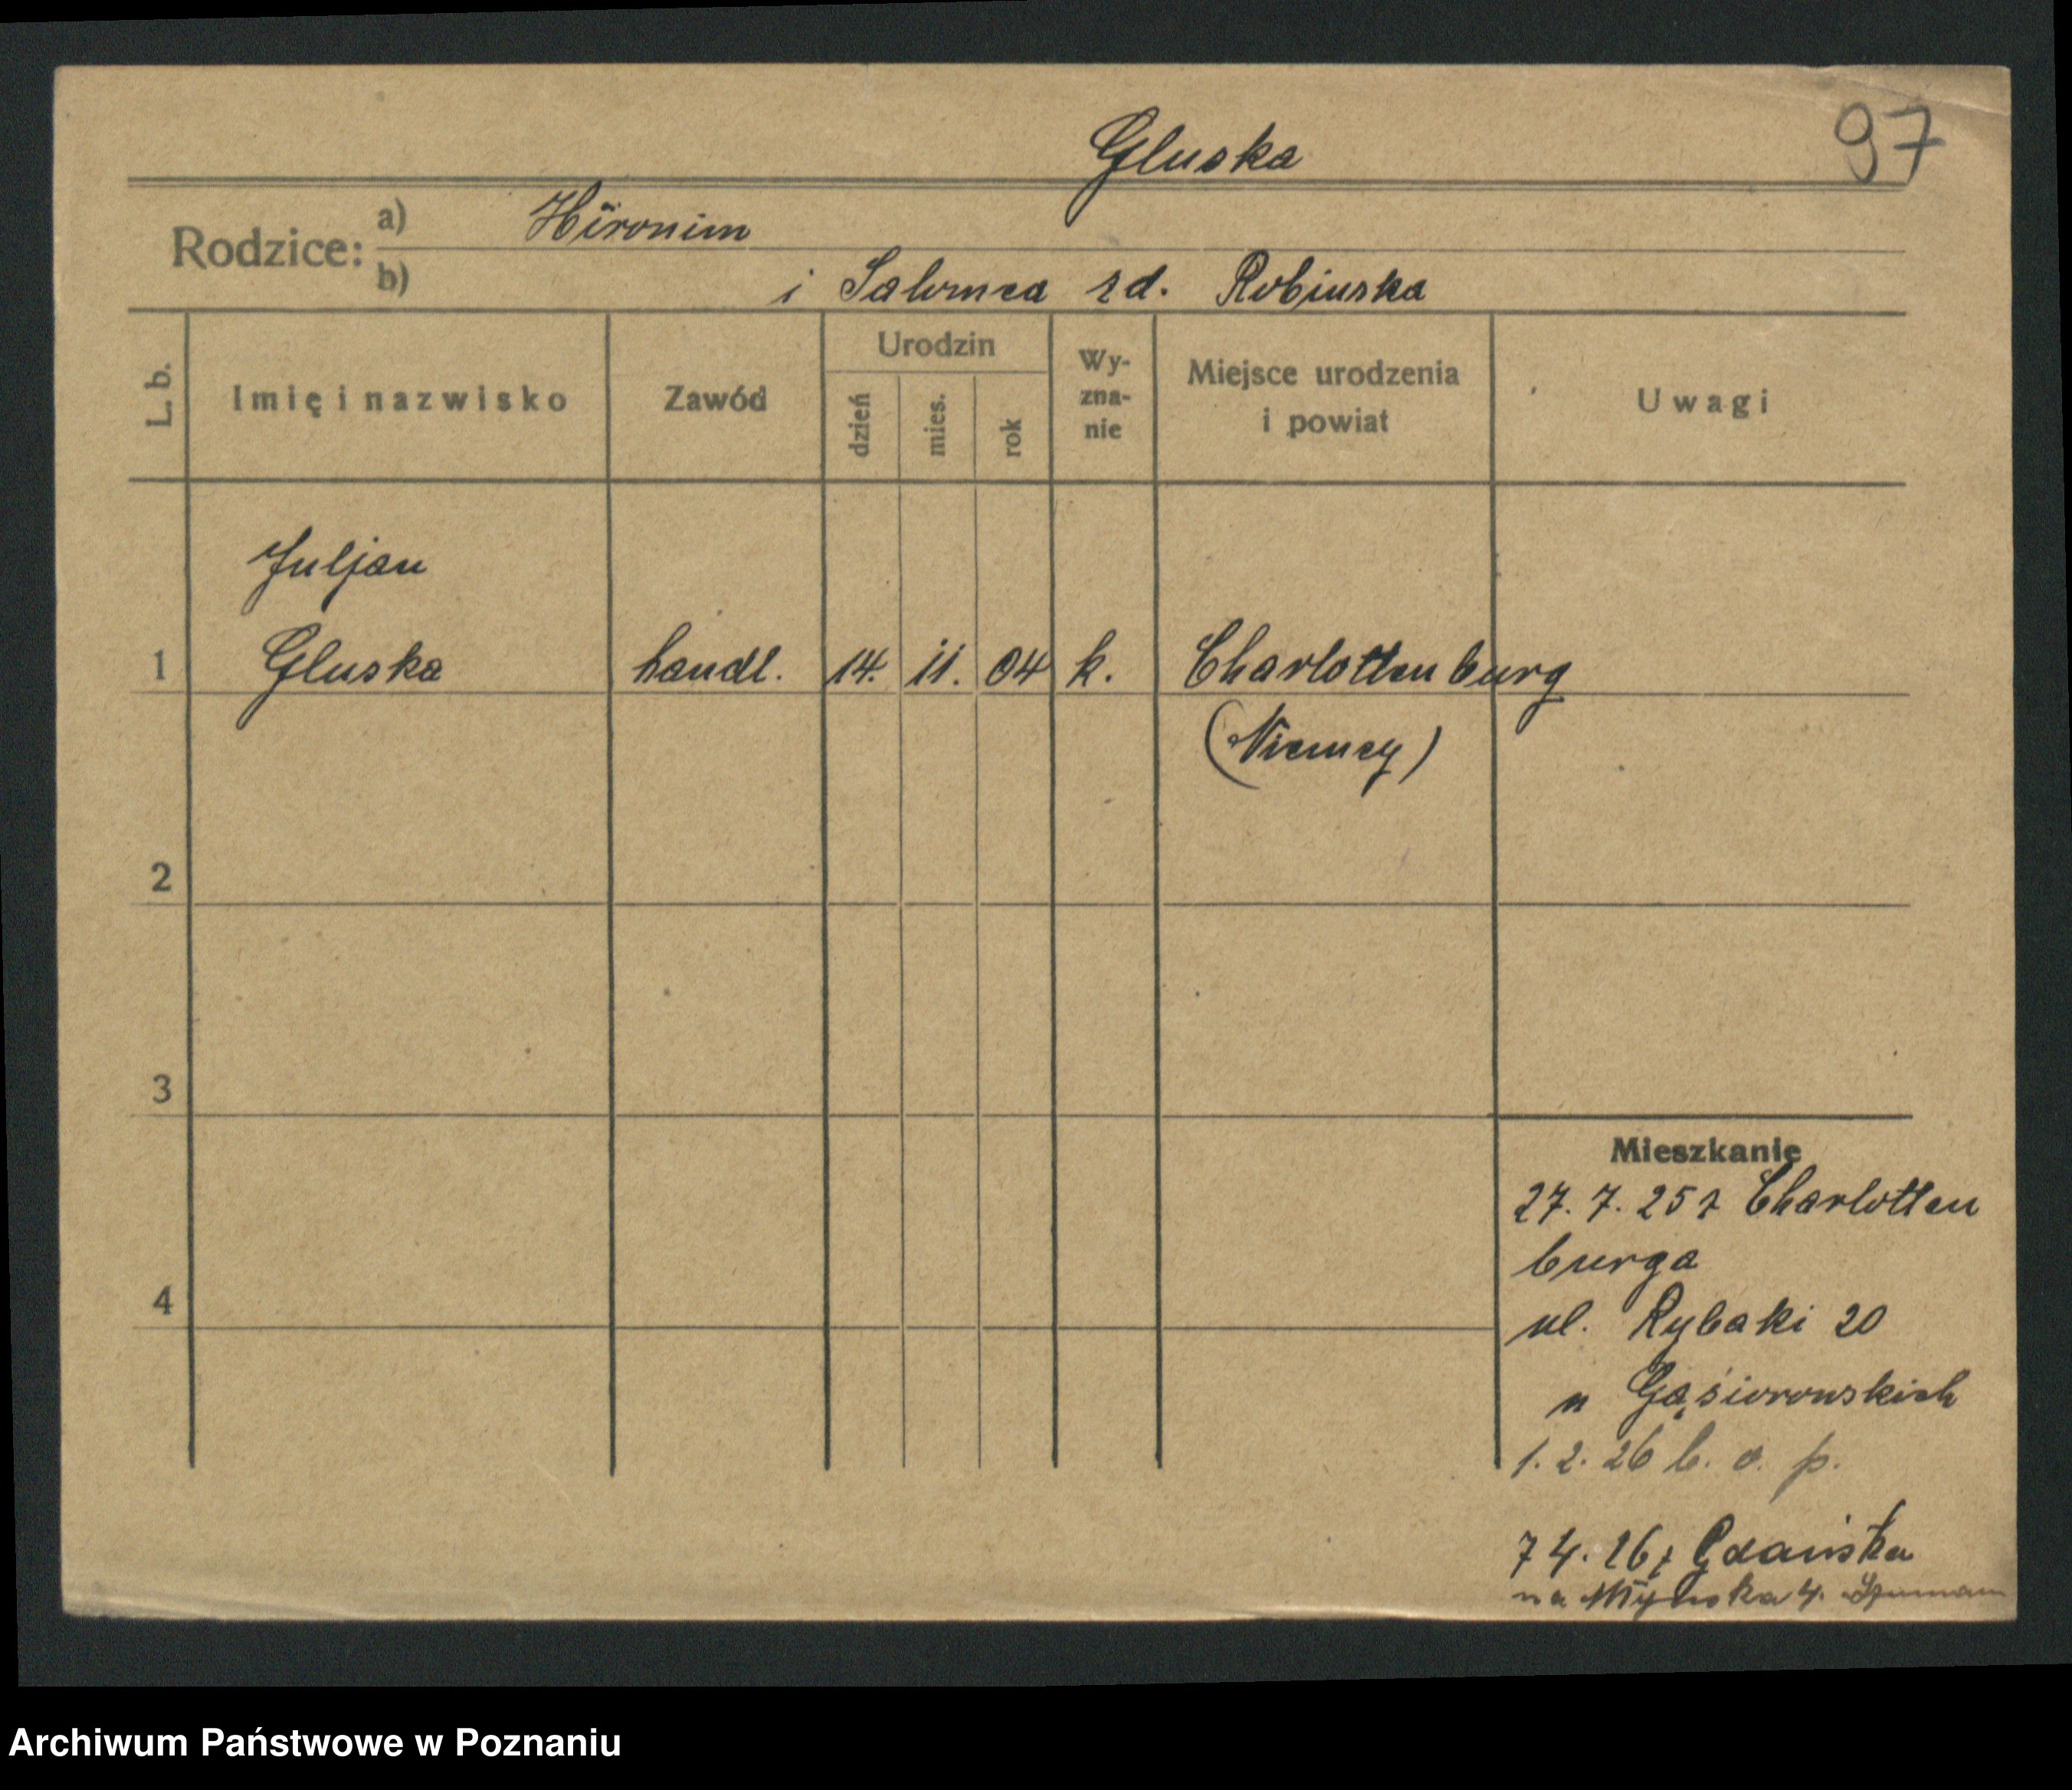 Gluska
97
Rodzice:
a) Hironim
b) i Salomea zd. Robinska
L. b.
Imię i nazwisko
Zawód
Urodzin
dzień
mies.
rok
Wy-
zna-
nie
Miejsce urodzenia
i powiat
Uwagi
Juljan
1 Gluska handl. 14. 11. 04 k. Charlottenburg
(Niemcy)
2
3
Mieszkanie
27. 7. 25 z Charlotten
burga
4
ul. Rybaki 20
u Gąsiorowskich
1. 2. 26 b. o. p.
7 4. 26 z Gdańska
na 4.
Archiwum Państwowe w Poznaniu